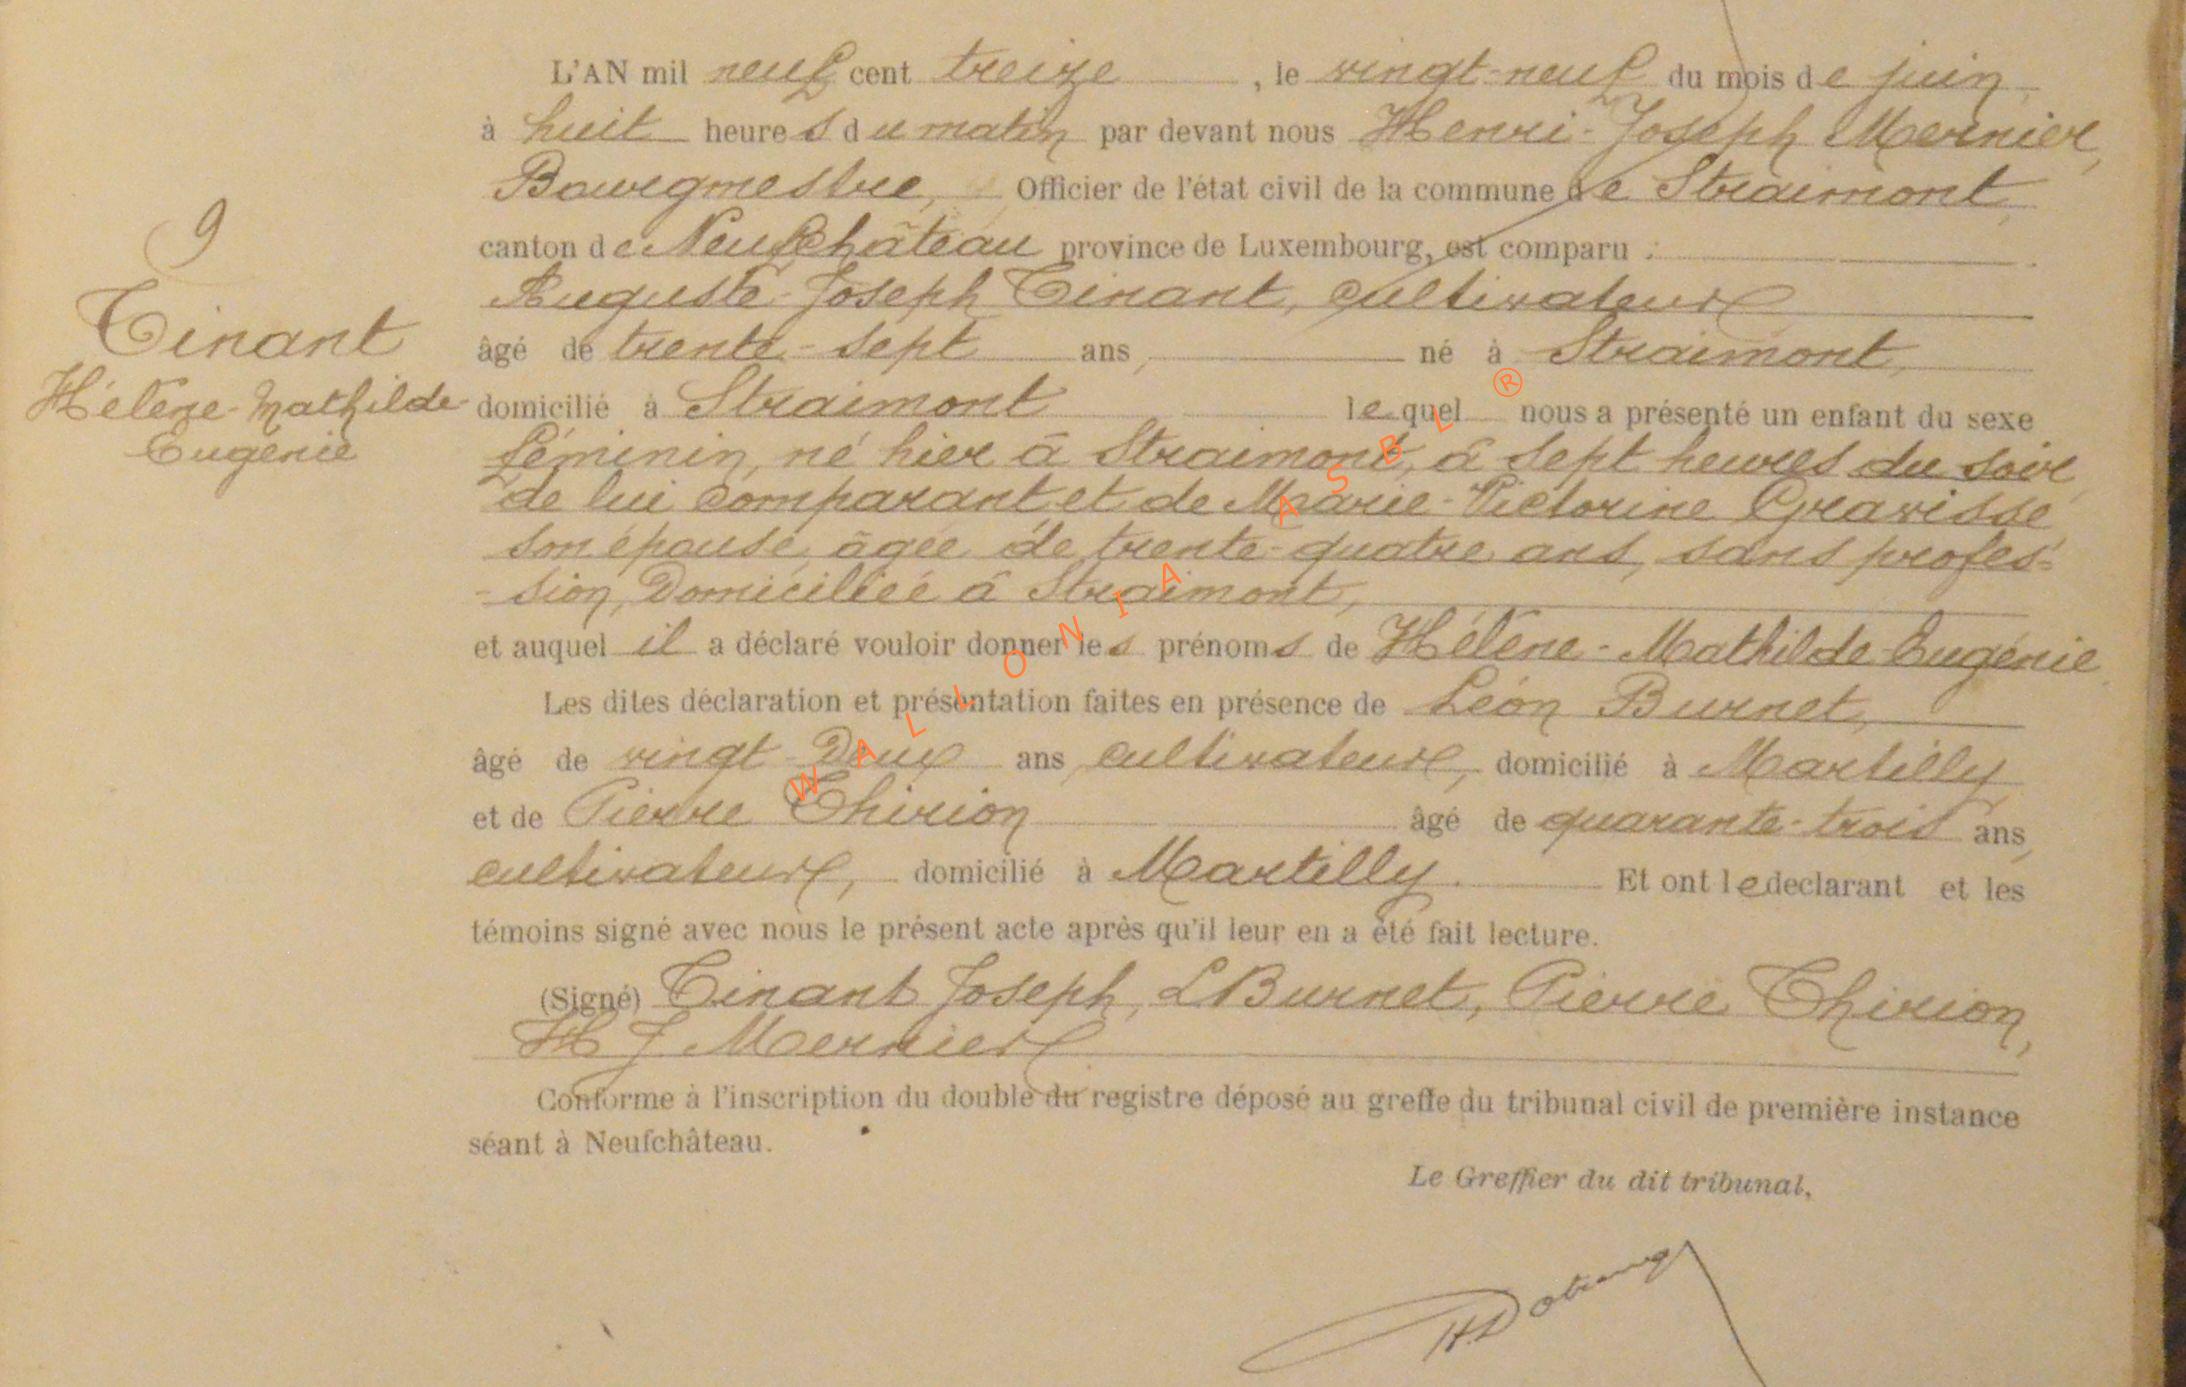 L'AN mil neuf cent treize, le vingt-neuf du mois de juin,
à huit heures du matin par devant nous Henri-Joseph Mernier,
Bourgmestre, Officier de l'état civil de la commune de Straimont,
canton de Neufchâteau province de Luxembourg, est comparu :
Auguste-Joseph Tinant, cultivateur
âgé de trente-sept ans, né à Straimont,
domicilié à Straimont lequel nous a présenté un enfant du sexe
féminin, né hier à Straimont, à sept heures du soir,
de lui comparant et de Marie-Victorine Gravisse
son épouse, âgée de trente-quatre ans, sans profes-
-sion, Domiciliée à Straimont,
et auquel il a déclaré vouloir donner les prénoms de Hélène-Mathilde-Eugénie
Les dites déclaration et présentation faites en présence de Léon Burnet,
âgé de vingt-Deux ans, cultivateur, domicilié à Martilly
et de Pierre Thirion âgé de quarante-trois ans,
cultivateur, domicilié à Martilly. Et ont le declarant et les
témoins signé avec nous le présent acte après qu'il leur en a été fait lecture.
(Signé) Tinant Joseph, L Burnet, Pierre Thirion,
H J Mernier
Conforme à l'inscription du double du registre déposé au greffe du tribunal civil de première instance
séant à Neufchâteau.
Le Greffier du dit tribunal,
9
Tinant
Hélène-Mathilde-
Eugénie
WALLONIA ASBL ®